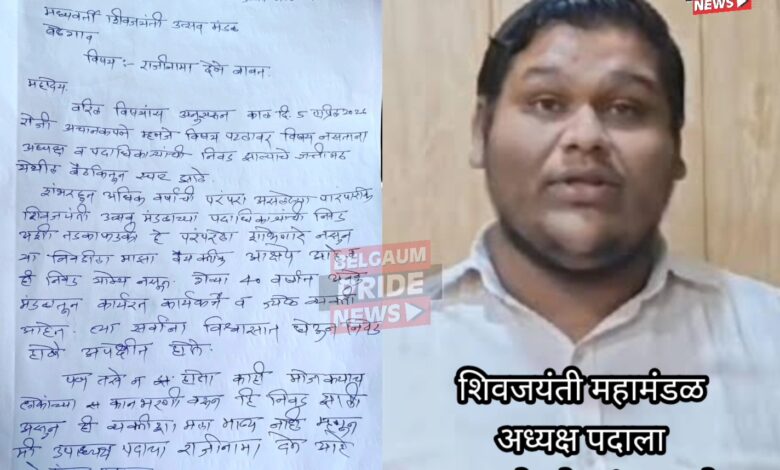 मध्यवर्ती शिवजयंती उत्सव मंडळ
वडगाव
विषय :- राजीनामा देणे बाबत.
महोदय
वरिल विषयास अनुसरून काल दि. 5 एप्रिल 2026
रोजी अचानकपणे म्हणजे विषय पटलावर विषय नसताना
अध्यक्ष व पदाधिकाऱ्यांची निवड झाल्याचे जत्तीमठ
येथील बैठकितून स्पष्ट झाले.
शंभरहून अधिक वर्षाची परंपरा असलेल्या पारंपारिक
शिवजयंती उत्सव मंडळाच्या पदाधिकाऱ्यांची निवड
अशी तडकाफडकी हे परंपरेला शोभणारे नसून
या निवडीला माझा वैयक्तीक आक्षेप आहे.
ही निवड योग्य नसून गेल्या 40 वर्षात अनेक
मंडळातून कार्यरत कार्यकर्ते व जेष्ठ व्यक्ती
आहेत. त्या सर्वांना विश्वासात घेऊन निवड
होणे अपेक्षीत होते.
पण तसे न होता काही मोजक्याच
लोकांच्या कानभरणी वरून हि निवड झाली
असून ही प्रक्रिया मला मान्य नाही म्हणून
मी उपाध्यक्ष पदाचा राजीनामा देत आहे
BELGAUM
PRIDE
NEWS
NEWS
शिवजयंती महामंडळ
अध्यक्ष पदाला